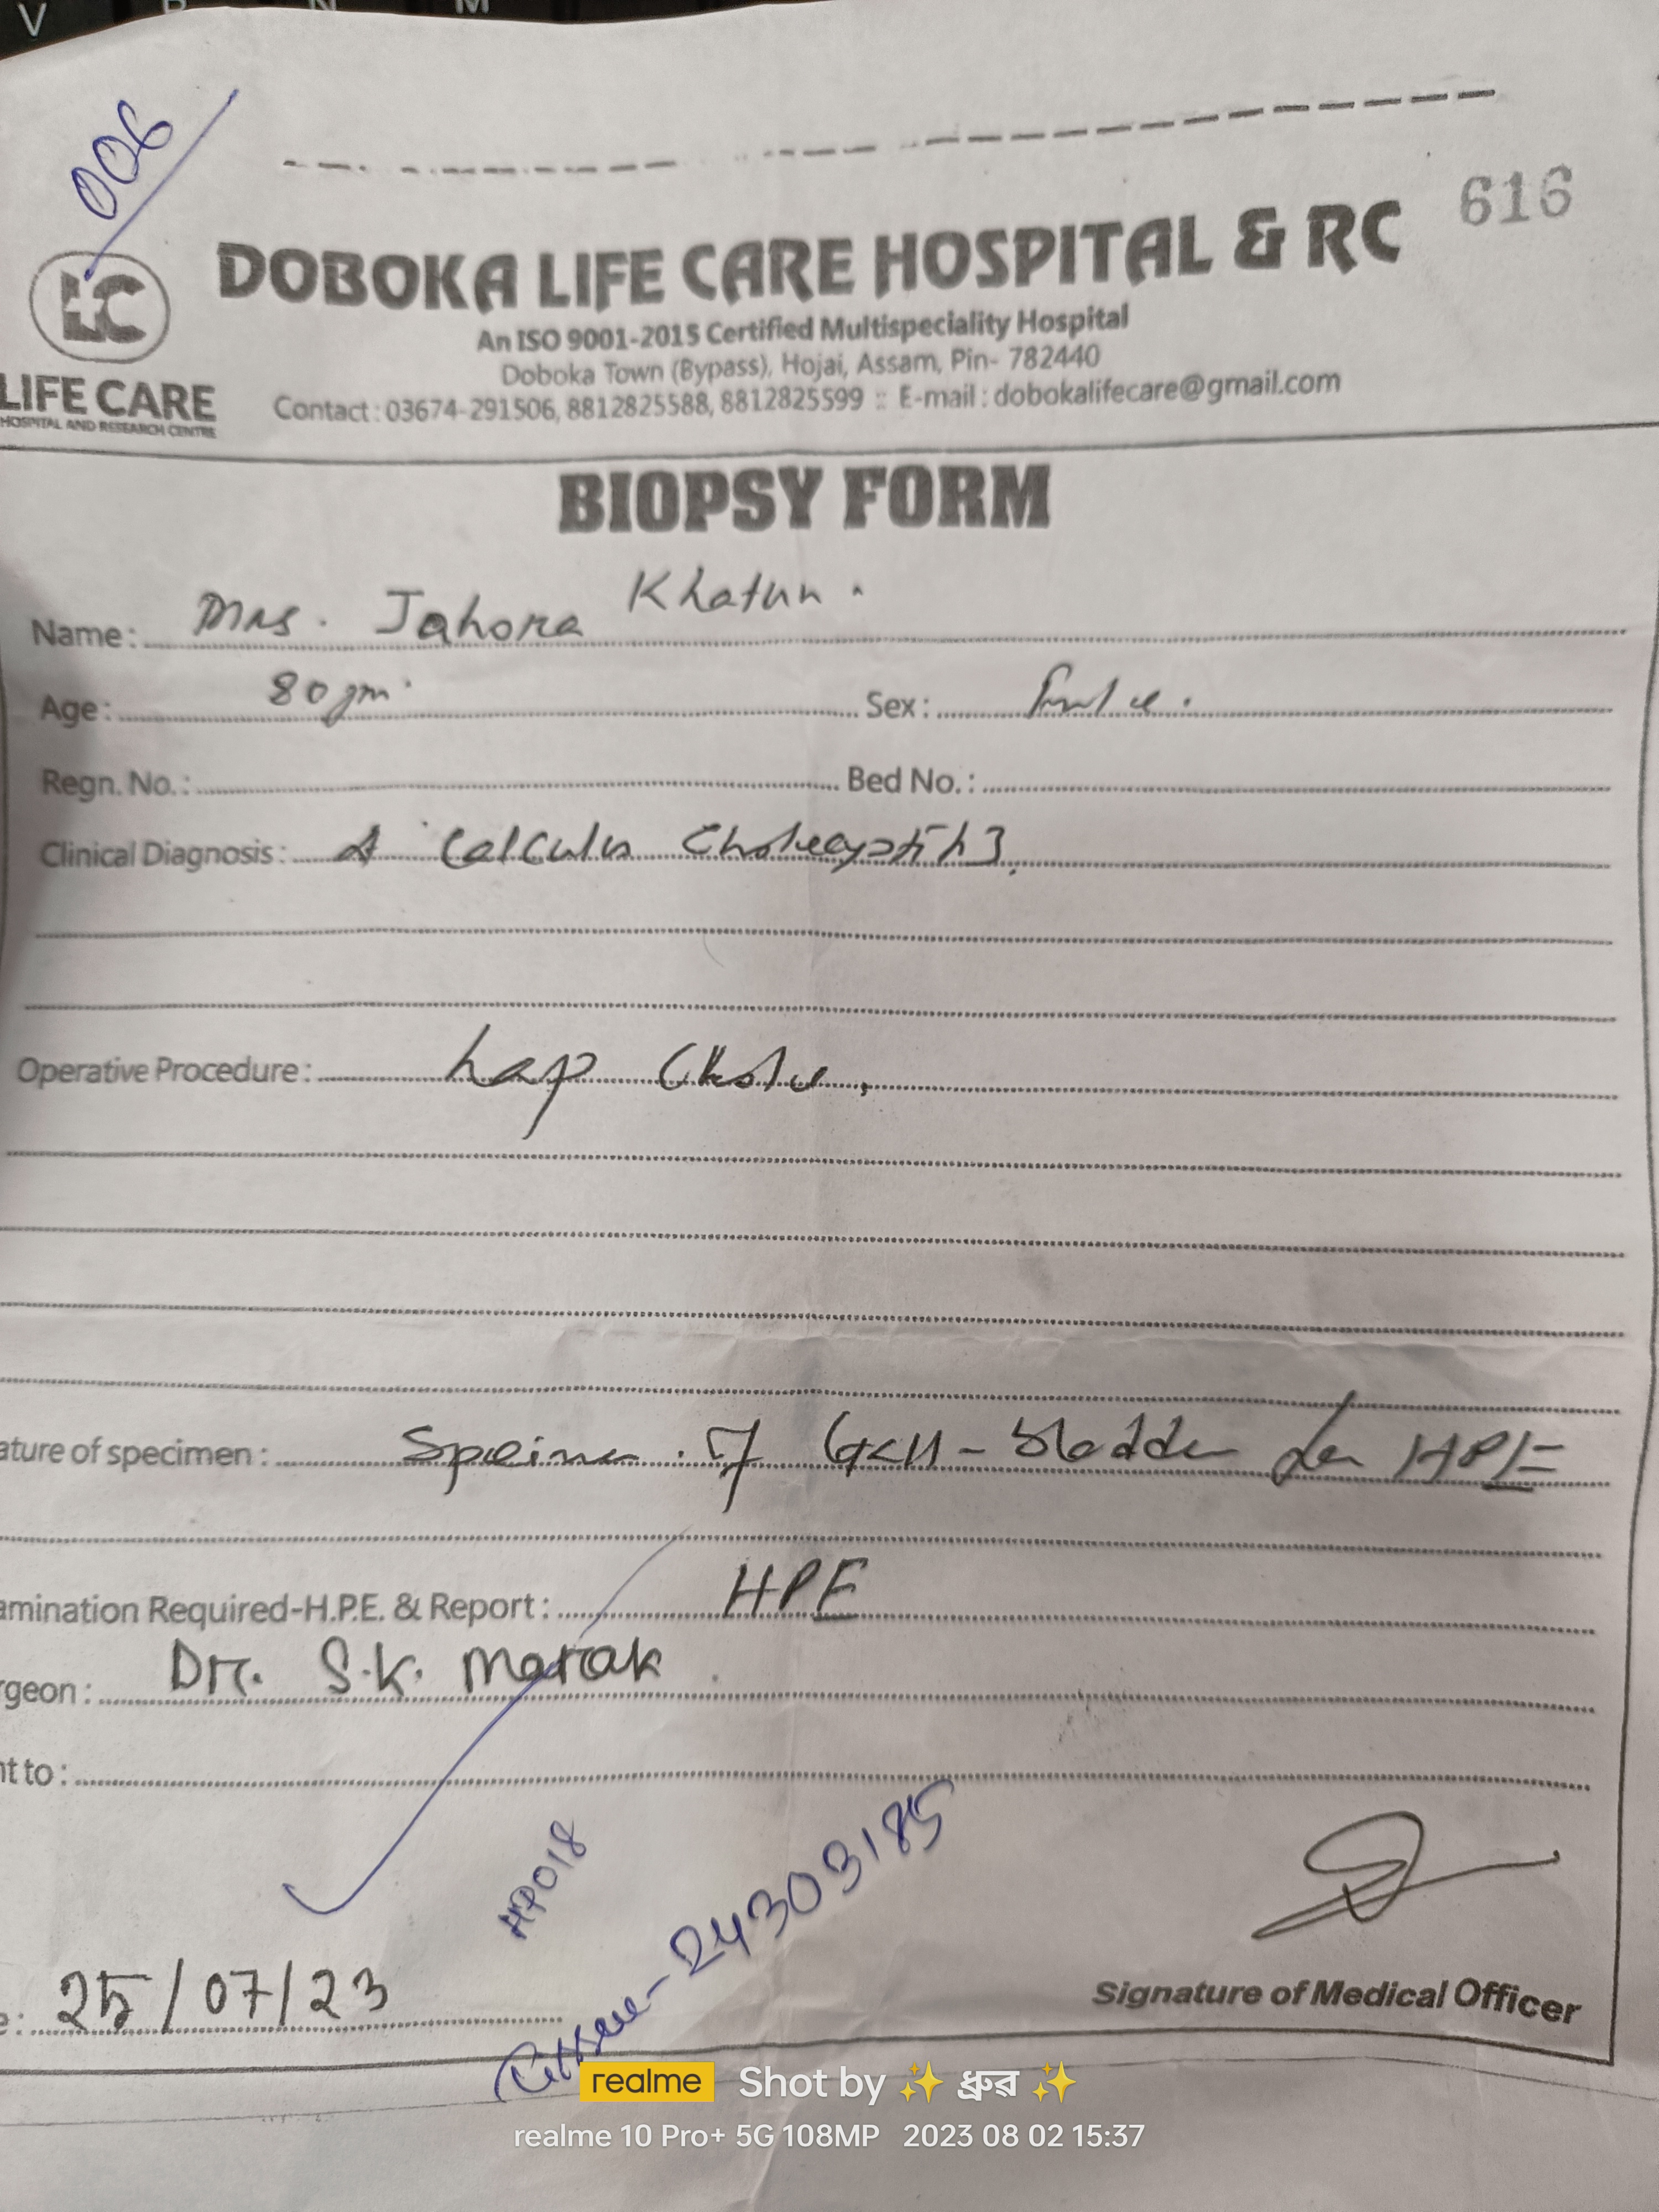 V B N M
006
616
LC
LIFE CARE
HOSPITAL AND RESEARCH CENTRE
DOBOKA LIFE CARE HOSPITAL & RC
An ISO 9001-2015 Certified Multispeciality Hospital
Doboka Town (Bypass), Hojai, Assam, Pin- 782440
Contact : 03674-291506, 8812825588, 8812825599 :: E-mail : dobokalifecare@gmail.com
BIOPSY FORM
Name: Mrs. Jahora Khatun.
Age: 80 Sex: Female.
Regn. No.: Bed No.:
Clinical Diagnosis: Calculus Cholecystitis
Operative Procedure: Lap Chole.
ature of specimen: Specimen of Gall-bladder for HPE
amination Required-H.P.E. & Report: HPE
rgeon: Dr. S.K. Marak
nt to:
HP018
24303185
e: 25/07/23
Signature of Medical Officer
realme Shot by ✨ ধ্রুৱ ✨
realme 10 Pro+ 5G 108MP 2023 08 02 15:37